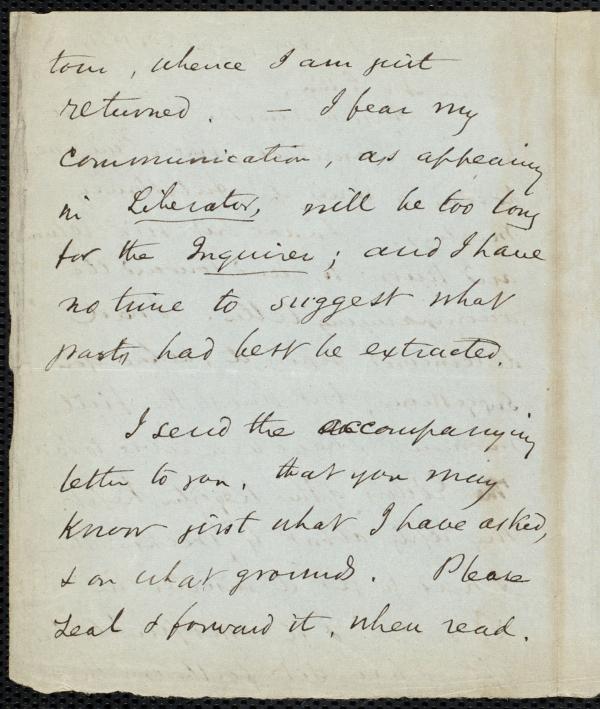 tour, whence I am just
returned. — I fear my
communication, as appearing
in Liberator, will be too long
for the Inquirer; and I have
no time to suggest what
parts had best be extracted.
I send the accompanying
letter to you, that you may
know just what I have asked,
& on what grounds. Please
seal & forward it, when read.